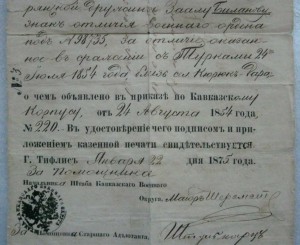 дружины Заалу
знак отличія военнаго ордена
за № 4735, за отличіе оказан-
ное въ сраженіи съ Турками 24го
Іюля 1854 года близь сел. Кюрюкъ-Дара
о чемъ объявлено въ приказѣ по Кавказскому
Корпусу, отъ 24 Августа 1854 года,
№ 220. Въ удостовѣреніе чего подписомъ и при-
ложеніемъ казенной печати свидѣтельствуется
Г. Тифлисъ, Января 22 дня 1875 года.
За Помощника
Начальника Штаба Кавказскаго Военнаго
Округа, Маіоръ
За Старшаго Адъютанта,